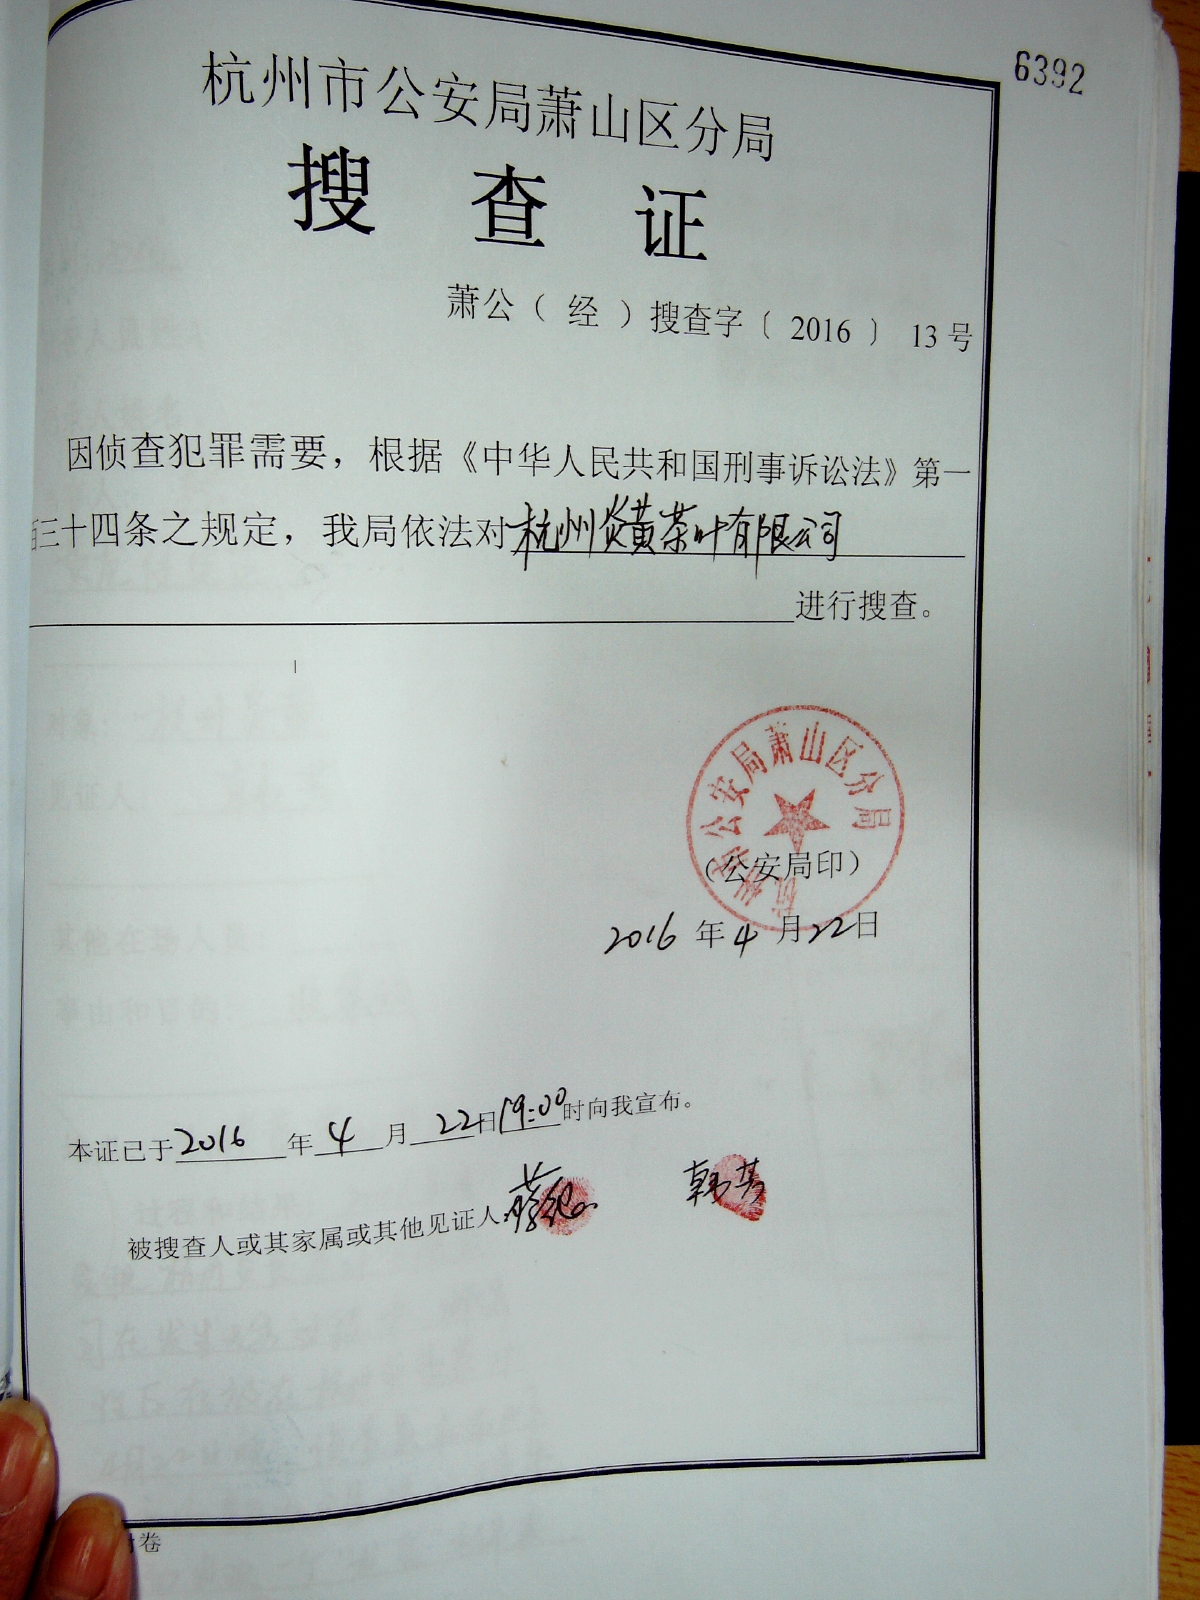 6392
杭州市公安局萧山区分局
搜查证
萧公（经）搜查字〔2016〕13号
因侦查犯罪需要，根据《中华人民共和国刑事诉讼法》第一
百三十四条之规定，我局依法对杭州炎黄茶叶有限公司
进行搜查。
杭州市公安局萧山区分局
（公安局印）
2016年4月22日
本证已于2016年4月22日19:00时向我宣布。
被搜查人或其家属或其他见证人：
附卷